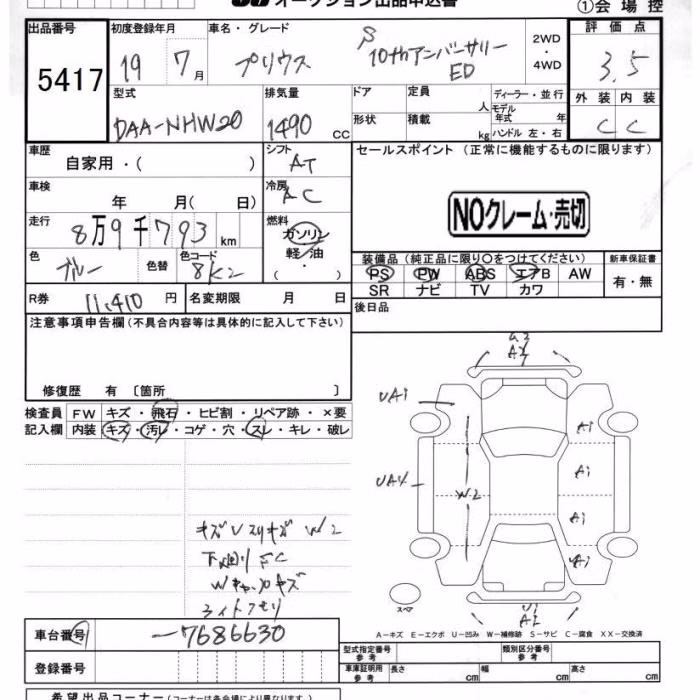 オークション出品申込書
①会場控
出品番号 初度登録年月 車名・グレード 評価点
5417 19 7月 プリウス S 10thアンバサリー ED 2WD・4WD 3.5
型式 排気量 ドア 定員 人 ディーラー・並行 外装 内装
DAA-NHW20 1490 cc 形状 積載 kg モデル年式 年 ハンドル 左・右 C C
車歴 自家用・( ) シフト AT セールスポイント (正常に機能するものに限ります)
車検 年 月( 日) 冷房 AC
NOクレーム・売切
走行 8万9千793km 燃料 ガソリン 軽油・( )
色 ブルー 色替 色コード 8K2
装備品(純正品に限り○をつけてください) 新車保証書
PS PW ABS エアB AW 有・無
SR ナビ TV カワ
R券 11,410円 名変期限 月 日 後日品
注意事項申告欄(不具合内容等は具体的に記入して下さい)
修復歴 有〔箇所 〕
検査員 FW キズ・飛石・ヒビ割・リペア跡・×要
記入欄 内装 キズ・汚レ・コゲ・穴・スレ・キレ・破レ
A2
UA1
A1
A1
UA4
W2
A1
A1
キズVスリキズ W2
下廻りFC
スペア
A-キズ E-エクボ U-凹み W-補修跡 S-サビ C-腐食 XX-交換済
車台番号 -7686630
型式指定番号 参考 類別区分番号 参考
登録番号
車庫証明用 参考 長さ cm 幅 cm 高さ cm
希望出品コーナー(コーナーは各会場により異なります。)